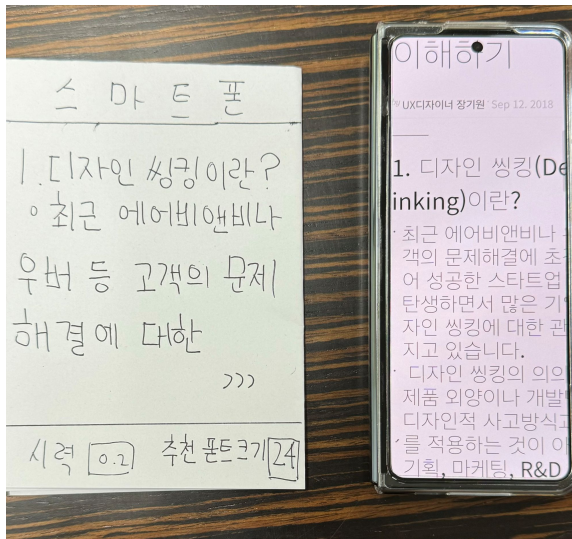 스마트폰
1. 디자인 씽킹이란?
° 최근 에어비앤비나
우버 등 고객의 문제
해결에 대한
>>>
시력 0.2 추천 폰트크기 24
이해하기
by UX디자이너 장기원 · Sep 12. 2018
1. 디자인 씽킹(De
inking)이란?
· 최근 에어비앤비나
객의 문제해결에 초
어 성공한 스타트업
탄생하면서 많은 기
자인 씽킹에 대한 관
지고 있습니다.
· 디자인 씽킹의 의의
제품 외양이나 개발
디자인적 사고방식
를 적용하는 것이 아
기획, 마케팅, R&D